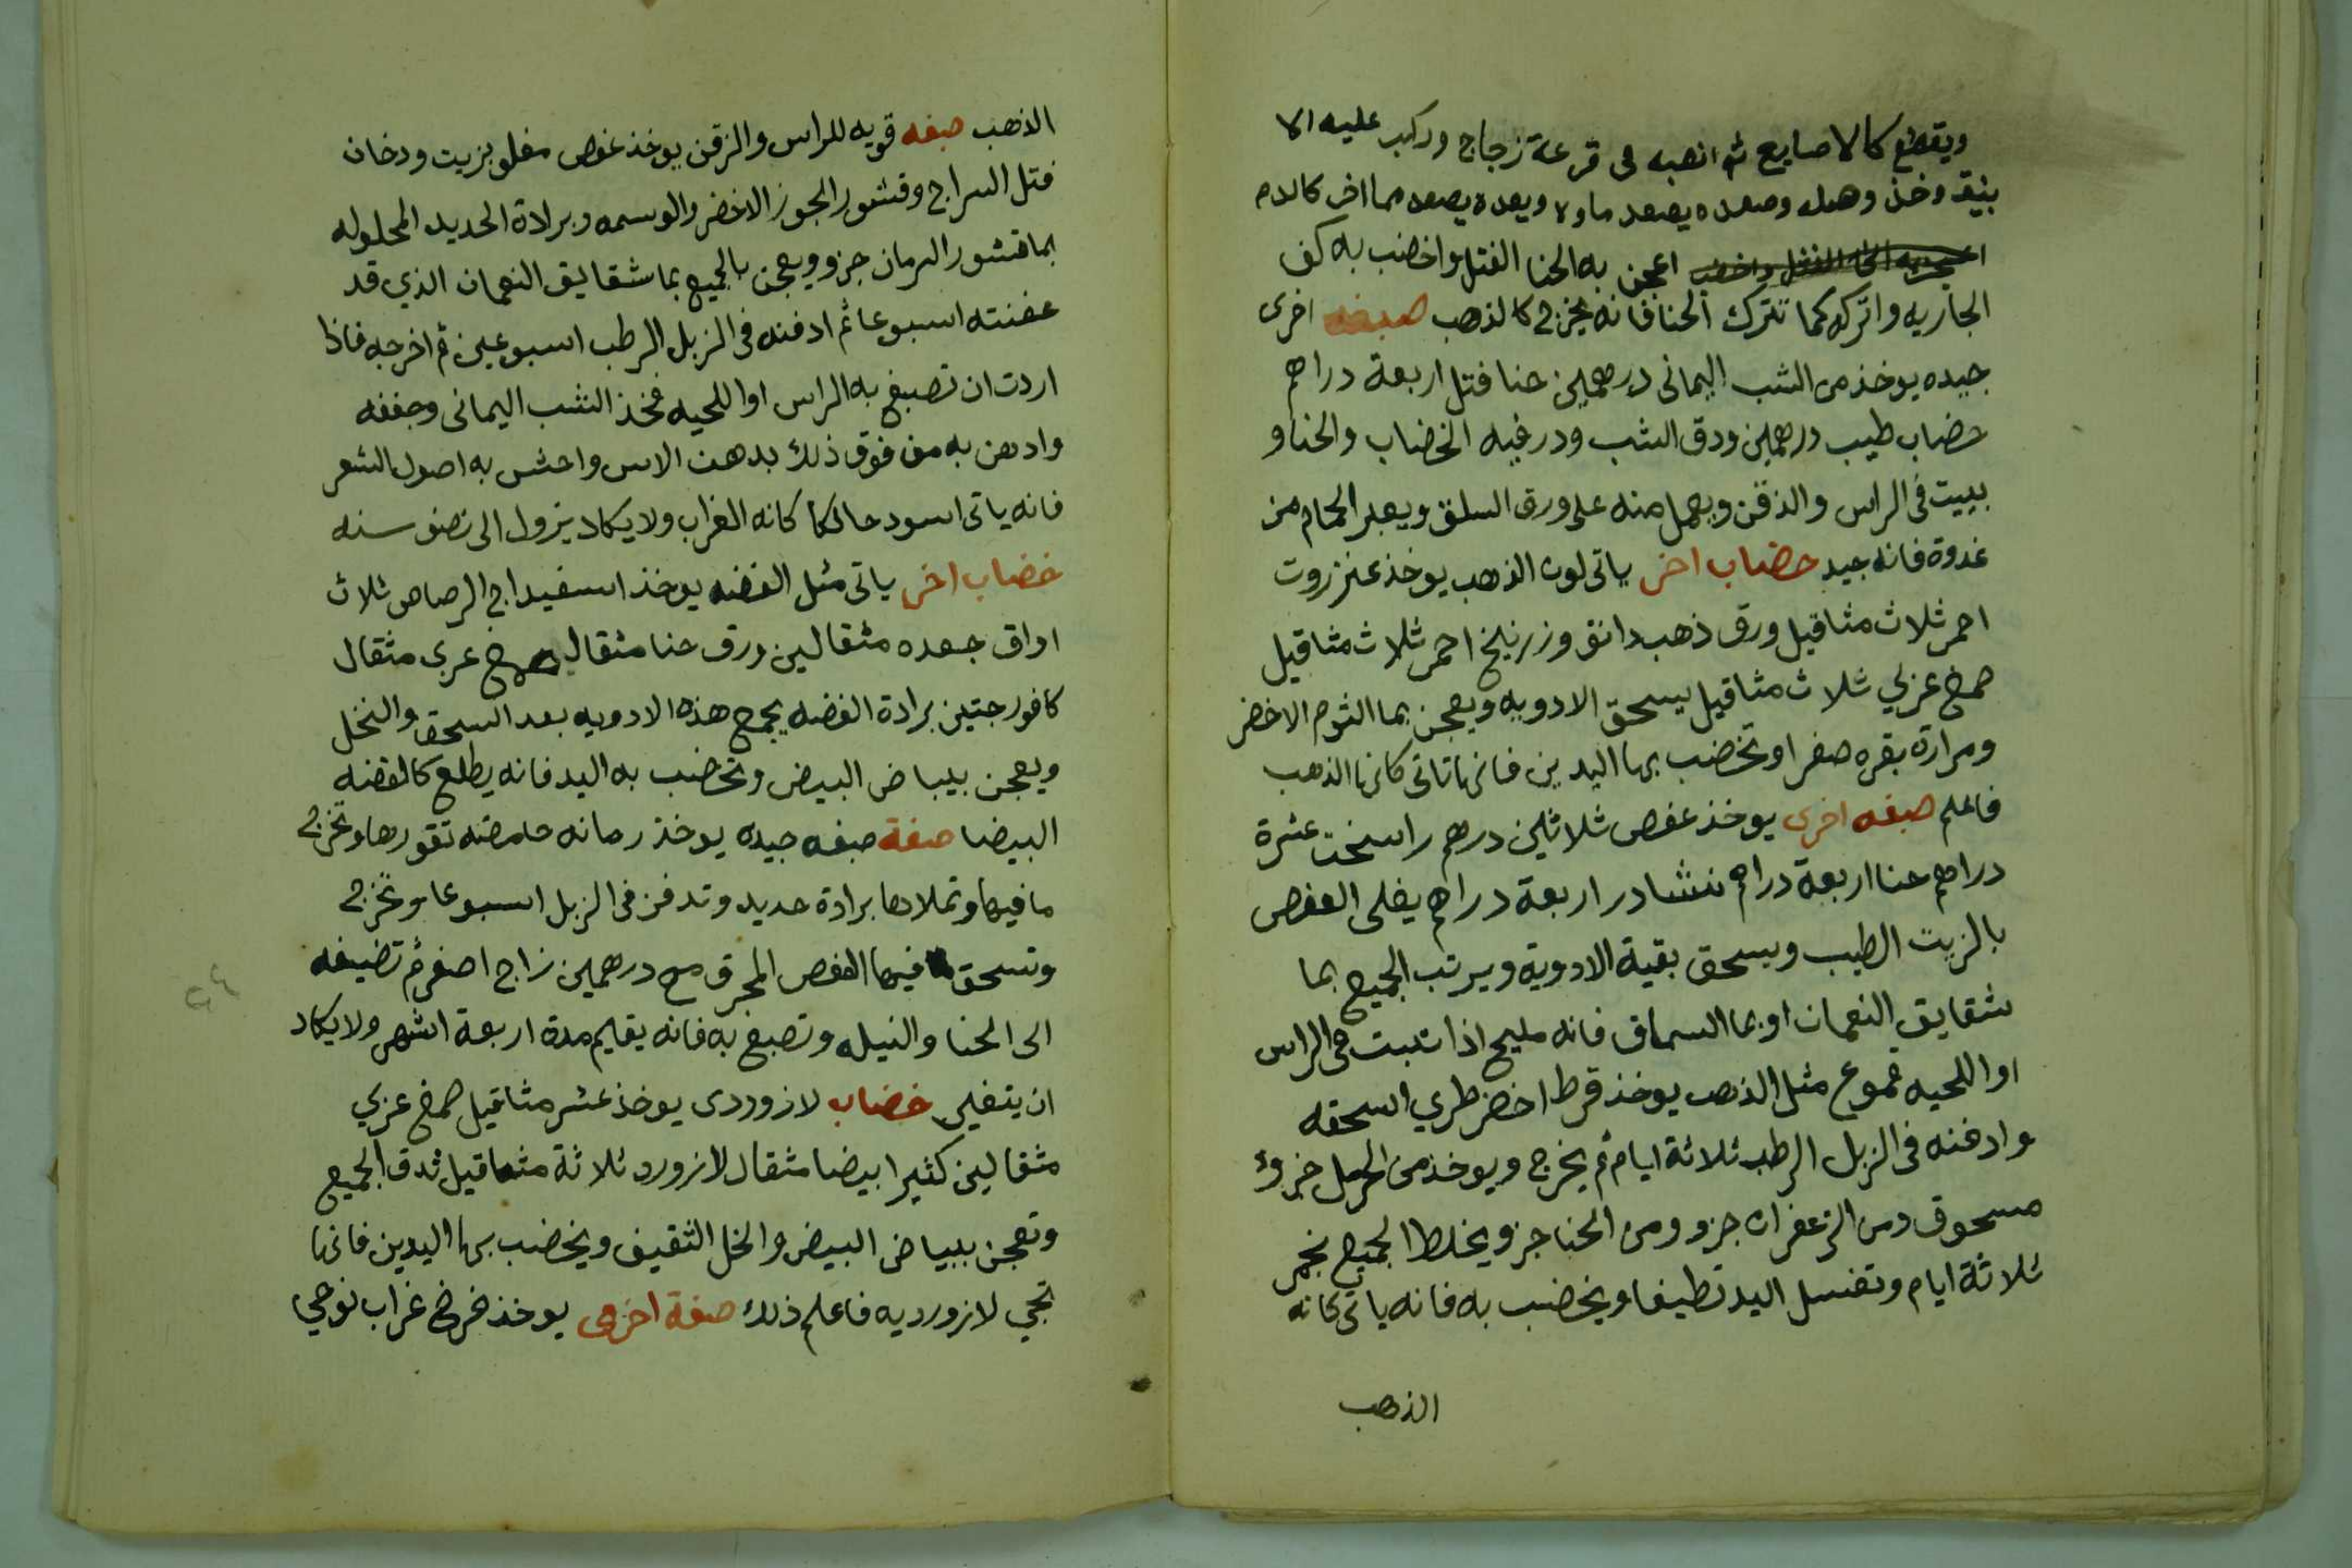 ويقطع كالاصابع ثم انصبه فى قرعة زجاج وركب عليه الا
بنيق وخذ وصعده يصعد ماوه وبعده يصعد مما اخر كالدم
اعجن به الحنا الفتل واخضب به كف
الجاريه واتركه كما تترك الحنا فانه يخرج كالذهب صبغه اخرى
جيده يوخذ من الشب اليمانى درهمين حنا فتل اربعة دراهم
خضاب طيب درهمين ودق الشب ودر فيه الخضاب والحنا و
يبيت فى الراس والذقن ويعمل منه على ورق السلق ويعبر الحمام من
غدوة فانه جيد خضاب اخر ياتى لون الذهب يوخذ عنزروت
احمر ثلاث مثاقيل ورق ذهب دانق وزرنيخ احمر ثلاث مثاقيل
صمغ عربي ثلاث مثاقيل يسحق الادويه ويعجن بما الثوم الاخضر
ومرارة بقره صفرا وتخضب بها اليدين فانها تاتى كانها الذهب
فاعلم صبغه اخرى يوخذ عفص ثلاثين درهم راسخت عشرة
دراهم حنا اربعة دراهم نشادر اربعة دراهم يغلى العفص
بالزيت الطيب ويسحق بقية الادوية ويرتب الجميع بما
شقايق النعمان او بما السماق فانه مليح اذا تبت فى الراس
او اللحيه قموع مثل الذهب يوخذ قرط اخضر طري اسحقه
وادفنه فى الزبل الرطب ثلاثة ايام ثم يخرج ويوخذ من الحرمل جزوء
مسحوق ومن الزعفران جزو ومن الحنا جزو يخلط الجميع نجمر
ثلاثة ايام وتغسل اليد نظيفا ويخضب به فانه ياتى كانه
الذهب
الذهب صبغه قويه للراس والزقن يوخذ عفص مغلو بزيت ودخان
فتل السراج وقشور الجوز الاخضر والوسمه وبرادة الحديد المحلوله
بما قشور الرمان جزو ويعجن بالجميع بما شقايق النعمان الذي قد
عفنته اسبوعا ثم ادفنه فى الزبل الرطب اسبوعين ثم اخرجه فاذا
اردت ان تصبغ به الراس او اللحيه فخذ الشب اليمانى وجففه
وادهن به من فوق ذلك بدهن الاس واحش به اصول الشعر
فانه ياتى اسود حالكا كانه الغراب ولا يكاد يزول الى نصف سنه
خضاب اخر ياتى مثل الفضه يوخذ اسفيداج الرصاص ثلاث
اواق جعده مثقالين ورق حنا مثقال صمغ عربى مثقال
كافور حبتين برادة الفضه يجمع هذه الادويه بعد السحق والنخل
ويعجن ببياض البيض وتخضب به اليد فانه يطلع كالفضه
البيضا صفة صبغه جيده يوخذ رمانه حامضه تقورها وتخرج
ما فيها وتملاها برادة حديد وتدفن فى الزبل اسبوعا وتخرج
وتسحق فيها العفص المحرق مع درهمين زاج اصفر ثم تضيفه
الى الحنا والنيله وتصبغ به فانه يقيم مدة اربعة اشهر ولا يكاد
ان يتغير خضاب لازوردى يوخذ عشر مثاقيل صمغ عربي
مثقالين كثيرا بيضا مثقال لازورد ثلاثة مثاقيل تدق الجميع
وتعجن ببياض البيض والخل الثقيف ويخضب بها اليدين فانها
تجي لازورديه فاعلم ذلك صفة اخرى يوخذ فرخ غراب نوحي